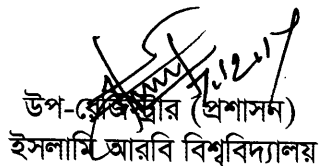 ৭.১২.১৭
উপ-রেজিস্ট্রার (প্রশাসন)
ইসলামি আরবি বিশ্ববিদ্যালয়